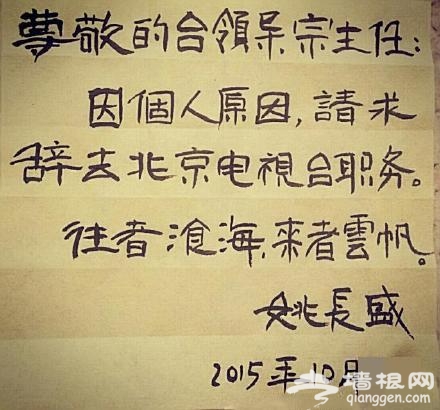 尊敬的台領导宗主任:
因個人原因,請求
辞去北京电視台职务。
往者滄海,來者雲帆。
姚長盛
2015年10月
墙根网
qianggen.com